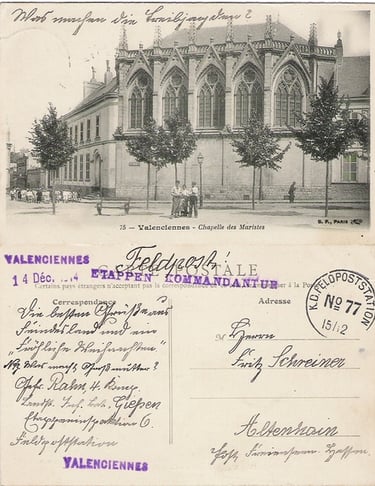 Was machen die Treibjagden?
75 — Valenciennes - Chapelle des Maristes
B. F., PARIS
Feldpost!
VALENCIENNES
14 Déc. 1914 ETAPPEN-KOMMANDANTUR
CARTE POSTALE
Certains pays étrangers n'acceptent pas la correspondance
Correspondance
Adresse
K.D. FELDPOSTSTATION
No 77
15/12
Die besten Grüße aus
Feindesland und ein
"Fröhliche Weihnachten"
Was macht Großmutter?
Gefr. Rahn, 4. Komp.
Landst. Inf. Batl. Gießen
Etappeninspektion 6
Feldpoststation
VALENCIENNES
M Herrn
Fritz Schreiner
Altenhain
Post Freienseen Hessen